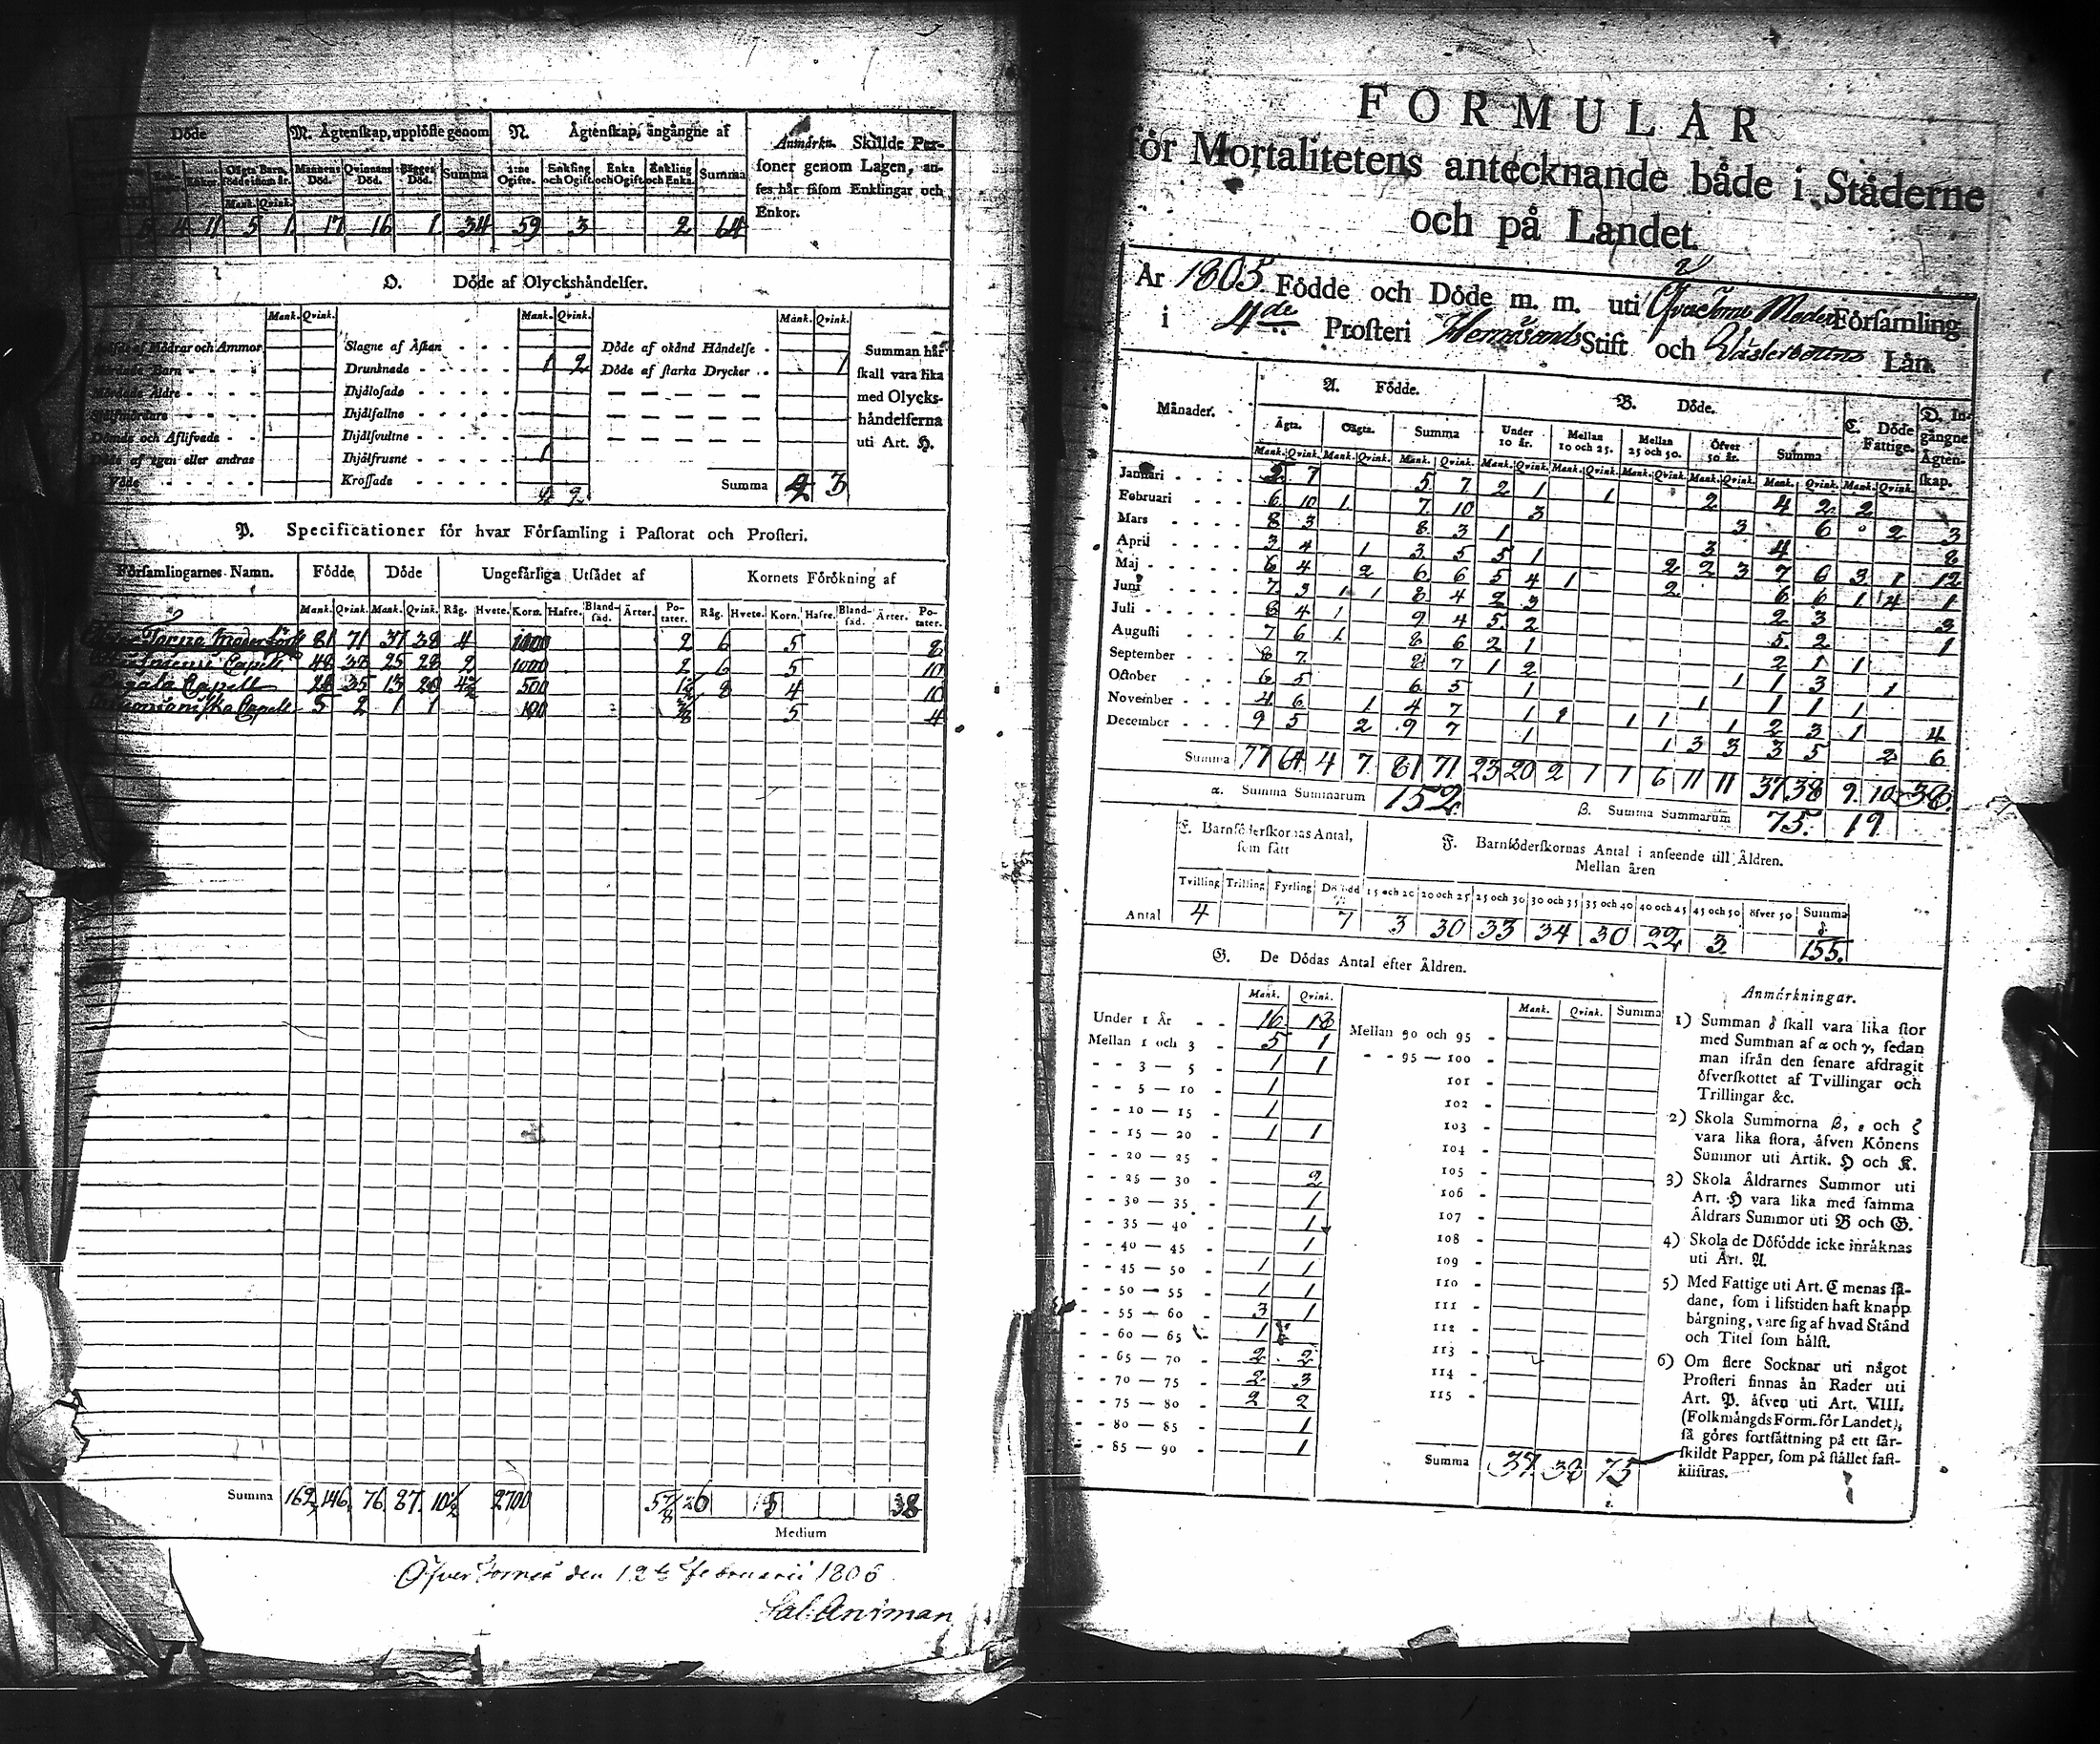 Döde
M. Ägtenskap, upplöste genom
N. Ägtenskap, ingångne af
Anmärkn. Skillde Per-
soner genom Lagen, an-
ses här såsom Enklingar och
Enkor.
Enkor. Oägta Barn, födde inom år. Mannens Död. Qvinnans Död. Bägges Död. Summa 1:ne Ogifte. Enkling och Ogift. Enka och Ogift. Enkling och Enka. Summa
Mank. Qvink.
4 11 5 1 17 16 1 34 59 3 2 64
O. Döde af Olyckshändelser.
Mank. Qvink. Mank. Qvink. Mank. Qvink.
Mödrar och Ammor
Slagne af Åskan
Döde af okänd Händelse
Summan här
Barn
Drunknade 1 2
Döde af starka Drycker 1
skall vara lika
Mördade Äldre
Ihjälosade
med Olycks-
Självmördare
Ihjälfallne
händelserna
Dömde och Aflifvade
Ihjälsvultne
uti Art. H.
Döde af egen eller andras
Ihjälfrusne 1
Våde
Krossade
Summa 2 3
P. Specificationer för hvar Församling i Pastorat och Prosteri.
Församlingarnes Namn. Födde Döde Ungefärliga Utsädet af Kornets Förökning af
Mank. Qvink. Mank. Qvink. Råg. Hvete. Korn. Hafre. Bland-säd. Ärter. Po-tater. Råg. Hvete. Korn. Hafre. Bland-säd. Ärter. Po-tater.
81 71 37 38 4 1000 2 6 5 8
Capell 48 38 25 28 2 1000 2 6 5 10
Capell 28 35 13 20 4½ 500 1½ 8 4 10
Capell 5 2 1 1 100 3/8 5 4
Summa 162 146 76 87 10½ 2700 5 7/8 38
Medium
Öfver Torneå den 12te Februarii 1806
FORMULÄR
för Mortalitetens antecknande både i Städerne
och på Landet.
År 1805. Födde och Döde m. m. uti Öfver Torneå Moder Församling
i 4de Prosteri Hernösands Stift och Västerbottns Län.
Månader. A. Födde. B. Döde. C. Döde Fattige. D. In-gångne Ägten-skap.
Ägta. Oägta. Summa Under 10 år. Mellan 10 och 25. Mellan 25 och 50. Öfver 50 år. Summa
Mank. Qvink. Mank. Qvink. Mank. Qvink. Mank. Qvink. Mank. Qvink. Mank. Qvink. Mank. Qvink. Mank. Qvink. Mank. Qvink.
Januari 5 7 5 7 2 1 1 2 4 2 2
Februari 6 10 1 7 10 3 3 6 2 3
Mars 8 3 8 3 1 3 4 8
April 3 4 1 3 5 5 1 2 2 3 7 6 3 1 12
Maj 6 4 2 6 6 5 4 1 2 6 6 1 4 1
Juni 7 3 1 1 8 4 2 3 2 3 3
Juli 8 4 1 9 4 5 2 5 2 1
Augusti 7 6 1 8 6 2 1 2 1 1
September 8 7 8 7 1 2 1 1 3 1
October 6 5 6 5 1 1 1 1 1
November 4 6 1 4 7 1 2 1 1 1 2 3 1 4
December 9 5 2 9 7 1 1 3 3 3 5 2 6
Summa 77 64 4 7 81 71 23 20 2 1 1 6 11 11 37 38 9 10 38
α. Summa Summarum 152
β. Summa Summarum 75. 19
E. Barnföderskornas Antal, som fått
F. Barnföderskornas Antal i anseende till Åldren.
Mellan åren
Tvilling Trilling Fyrling Dödfödd 15 och 20 20 och 25 25 och 30 30 och 35 35 och 40 40 och 45 45 och 50 öfver 50 Summa
Antal 4 7 3 30 33 34 30 22 3 155.
G. De Dödas Antal efter Åldren.
Mank. Qvink. Mank. Qvink. Summa
Under 1 År 16 18
Mellan 1 och 3 5 1
3 — 5 1 1
5 — 10 1
10 — 15 1
15 — 20 1 1
20 — 25
25 — 30 2
30 — 35 1
35 — 40 1
40 — 45 1
45 — 50 1 1
50 — 55 1 1
55 — 60 3 1
60 — 65 1
65 — 70 2 2
70 — 75 2 3
75 — 80 2 2
80 — 85 1
85 — 90 1
Mellan 90 och 95
95 — 100
101
102
103
104
105
106
107
108
109
110
111
112
113
114
115
Summa 37 38 75
Anmärkningar.
1) Summan δ skall vara lika stor
med Summan af α och γ, sedan
man ifrån den senare afdragit
öfverskottet af Tvillingar och
Trillingar &c.
2) Skola Summorna β, ε och ζ
vara lika stora, äfven Könens
Summor uti Artik. H och K.
3) Skola Åldrarnes Summor uti
Art. H vara lika med samma
Åldrars Summor uti B och G.
4) Skola de Döfödde icke inräknas
uti Art. A.
5) Med Fattige uti Art. C menas så-
dane, som i lifstiden haft knapp
bärgning, vare sig af hvad Stånd
och Titel som hälst.
6) Om flere Socknar uti något
Prosteri finnas än Rader uti
Art. P. äfven uti Art. VIII.
(Folkmängds Form. för Landet),
så göres fortsättning på ett sär-
skildt Papper, som på stället fast-
klistras.